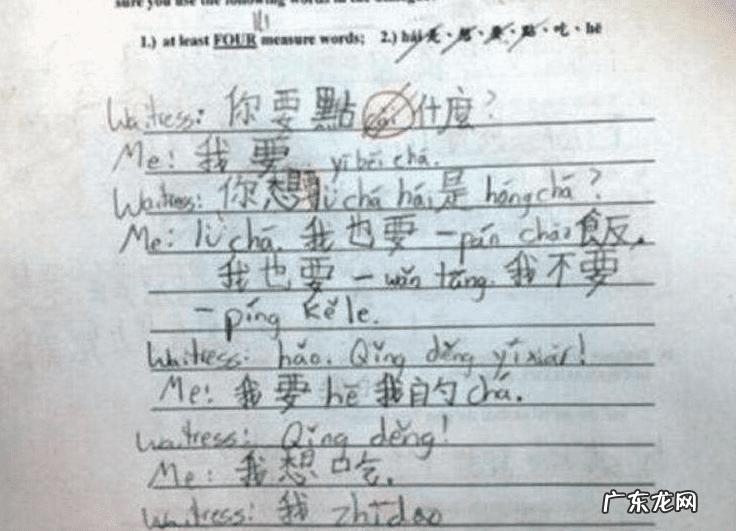 sure you use the following words in the dialogue.
1.) at least FOUR measure words; 2.) hái是、想、要、點、吃、hē
Waitress: 你要點什麼?
Me: 我要 yī bēi chá.
Waitress: 你想 lǜ chá hái是 hóng chá?
Me: lǜ chá. 我也要一pán chǎo飯,
我也要一wǎn tāng. 我不要
一píng kělè.
Waitress: hǎo. Qǐng děng yí xiàr!
Me: 我要 hē 我的 chá.
Waitress: Qǐng děng!
Me: 我想吃.
Waitress: 我 zhīdao
广东龙网